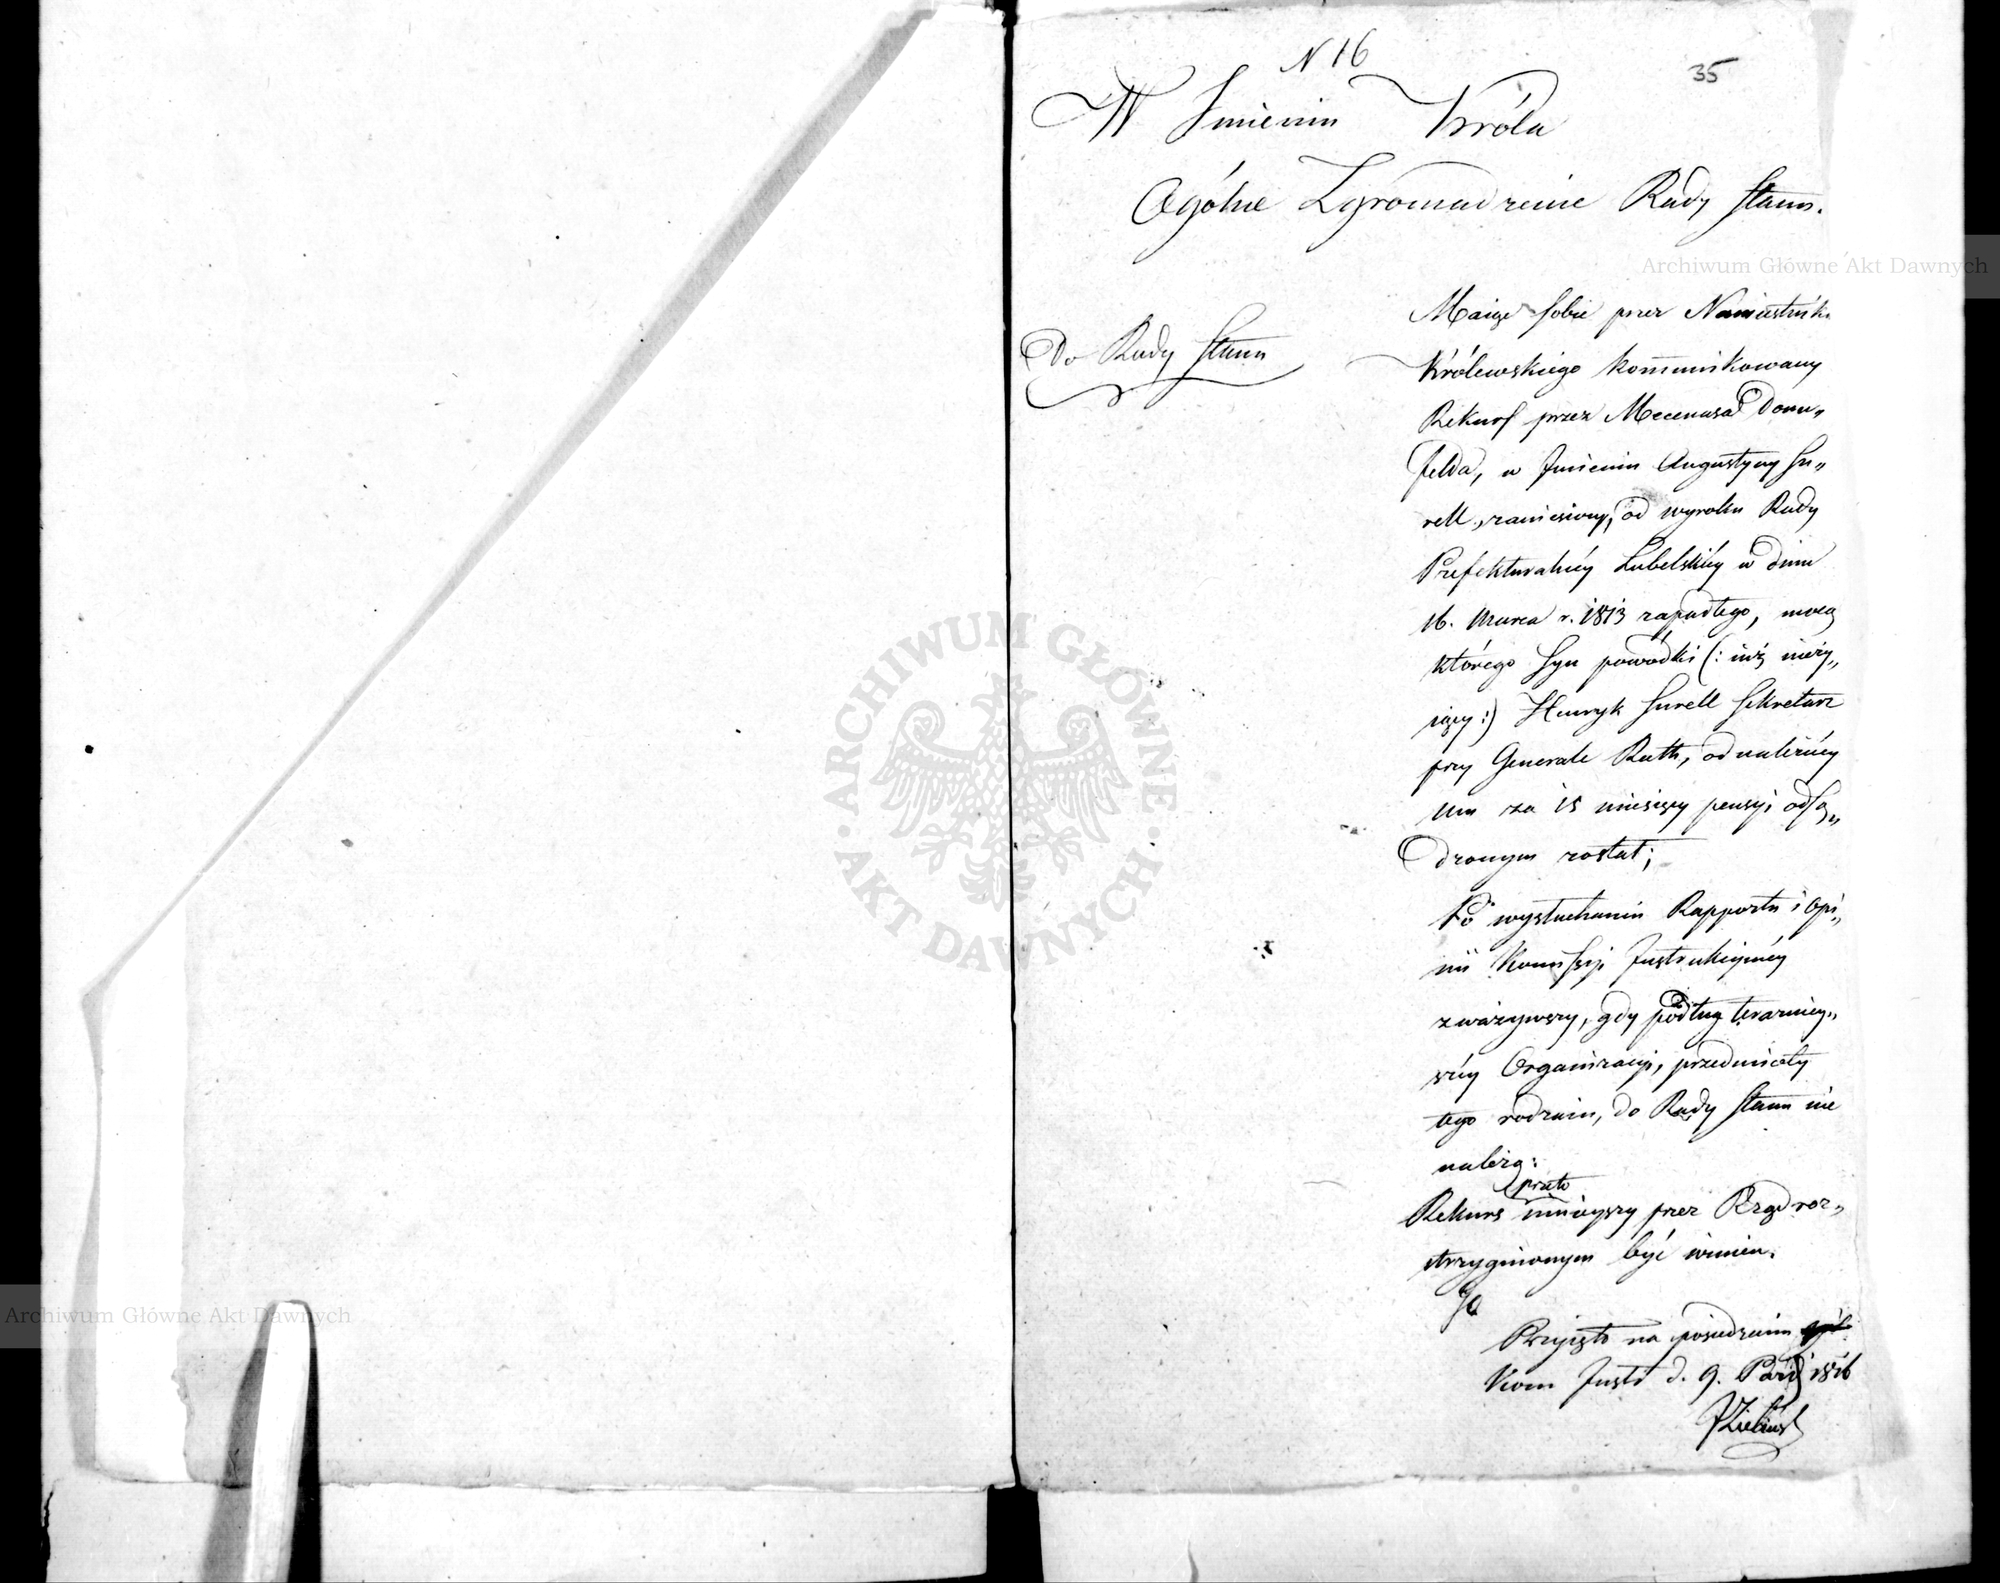 N 16
35
W Imieniu Króla
Ogólne Zgromadzenie Rady Stanu.
Do Rady Stanu
Maiąc sobie przez Namiestnika
Królewskiego kommunikowany
Rekurs przez Mecenasa Donn„
felda, w Imieniu Augustyny Su„
rell, zaniesiony, od wyroku Rady
Prefekturalnéy Lubelskiéy w dniu
16. Marca r. 1813 zapadłego, mocą
którego Syn powódki (: iuż nieży„
iący :) Henryk Surell Sekretarz
przy Generale Rath, od należnéy
mu za 15 miesięcy pensyi odsą„
dzonym został;
Po wysłuchaniu Rapportu i Opi„
nii Kommissyi Instrukcyinéy
zważywszy, gdy podług teraźniey„
széy Organizacyi, przedmioty
tego rodzaiu, do Rady Stanu nie
należą:
przeto
Rekurs ninieyszy przez Rząd roz„
strzygnionym być winien.
Przyięto na posiedzeniu
Kom Instr d. 9. Paźd 1816
Archiwum Główne Akt Dawnych
ARCHIWUM GŁÓWNE AKT DAWNYCH
Archiwum Główne Akt Dawnych